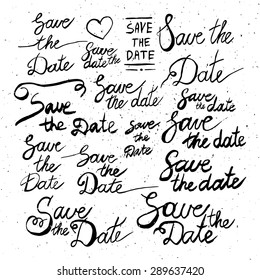 Save
the
Date
Save
date the
SAVE
THE
DATE
Save the
Date
Save
the date
Save
the
Date
Save
the date
Save
the date
Save
the
Date
Save
the
Date
Save
the
date
Save
the date
Save
the Date
Save
the
Date
shutterstock.com · 289637420